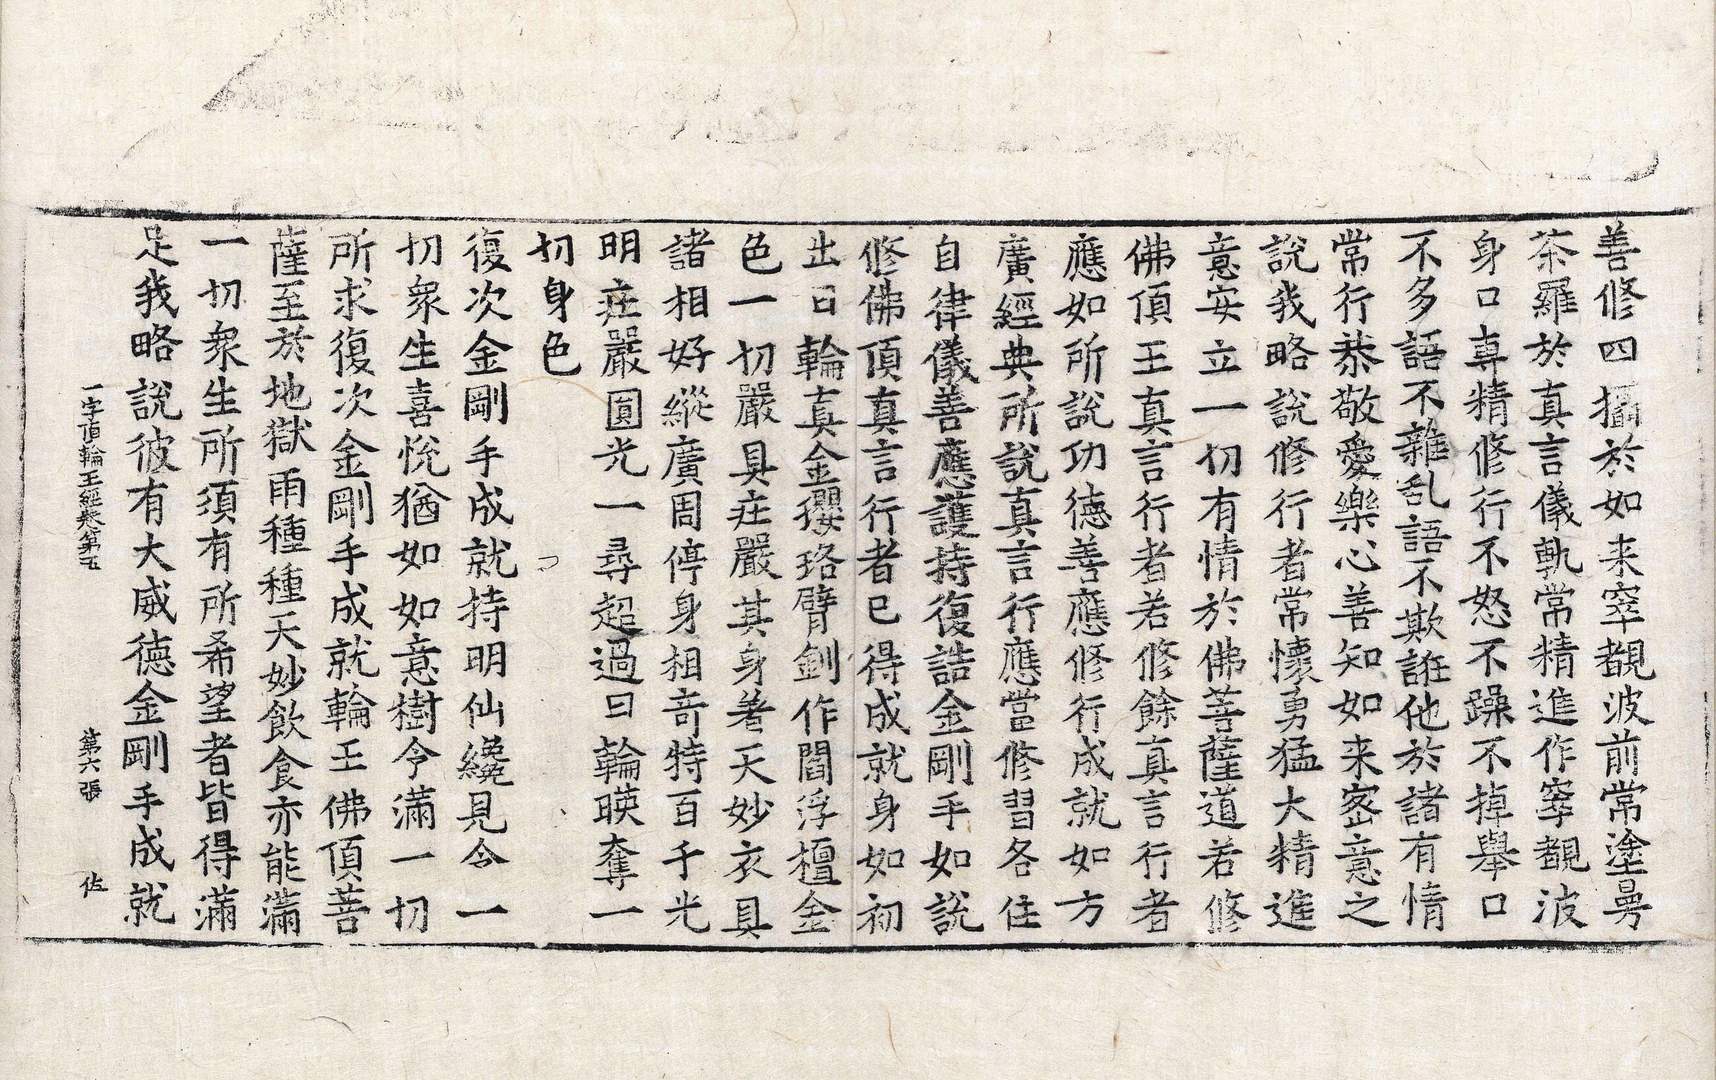 善修四攝於如来窣覩波前常塗曼
茶羅於真言儀軌常精進作窣覩波
身口専精修行不怒不躁不掉舉口
不多語不雜乱語不欺誑他於諸有情
常行恭敬愛樂心善知如来密意之
說我略說修行者常懷勇猛大精進
意安立一切有情於佛菩薩道若修
佛頂王真言行者若修餘真言行者
應如所說功德善應修行成就如方
廣經典所說真言行應當修習各住
自律儀善應護持復誥金剛手如說
修佛頂真言行者已得成就身如初
出日輪真金瓔珞臂釧作閻浮檀金
色一切嚴具莊嚴其身著天妙衣具
諸相好縱廣周停身相奇特百千光
明莊嚴圓光一尋超過日輪暎奪一
切身色
復次金剛手成就持明仙纔見令一
切衆生喜恱猶如如意樹令滿一切
所求復次金剛手成就輪王佛頂菩
薩至於地獄雨種種天妙飲食亦能滿
一切衆生所須有所希望者皆得滿
足我略說彼有大威德金剛手成就
一字頂輪王經卷第五 第六張 佐